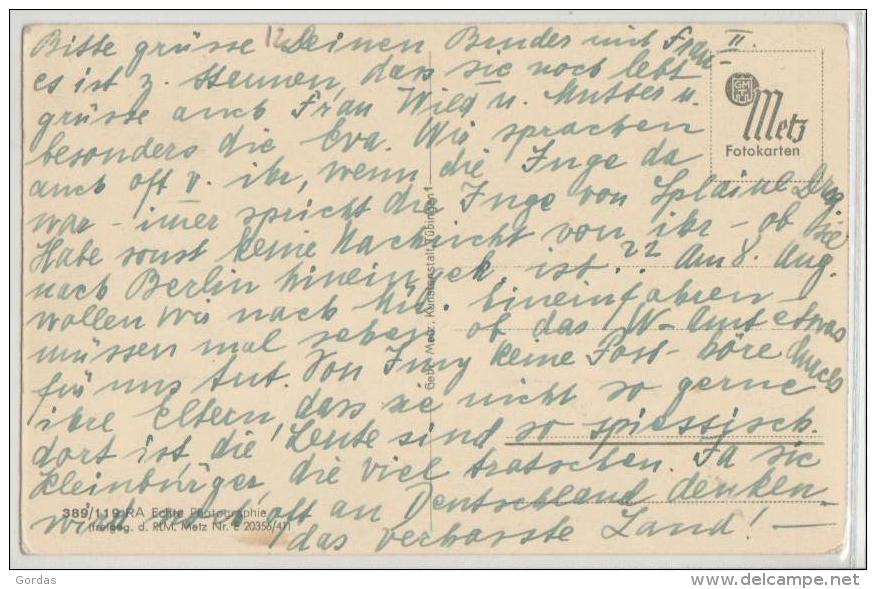 12.
II.
Bitte grüsse Deinen Bruder mit Frau -
es ist z. staunen, dass sie noch lebt
grüsse auch Frau Wild u. Mutter u.
besonders die Eva. Wir sprachen
auch oft v. ihr, wenn die Inge da
war - imer spricht die Inge von
Habe sonst keine Nachricht von ihr - ob sie
nach Berlin hinein ist.. ?? Am 8. Aug.
wollen wir nach hineinfahren -
müssen mal sehen ob das W-Amt etwas
für uns tut. Von keine Post - höre durch
ihre Eltern, dass sie nicht so gerne
dort ist, die Leute sind so spiessisch.
Kleinbürger, die viel tratschen. Ja sie
wird wohl oft an Deutschland denken -
das verhasste Land! -
GMT
Metz
Fotokarten
Gebr. Metz, Kunstanstalt, Tübingen
389/119 RA Echte Photographie
(freigeg. d. RLM. Metz Nr. E 20356/41)
Gordas
www.delcampe.net